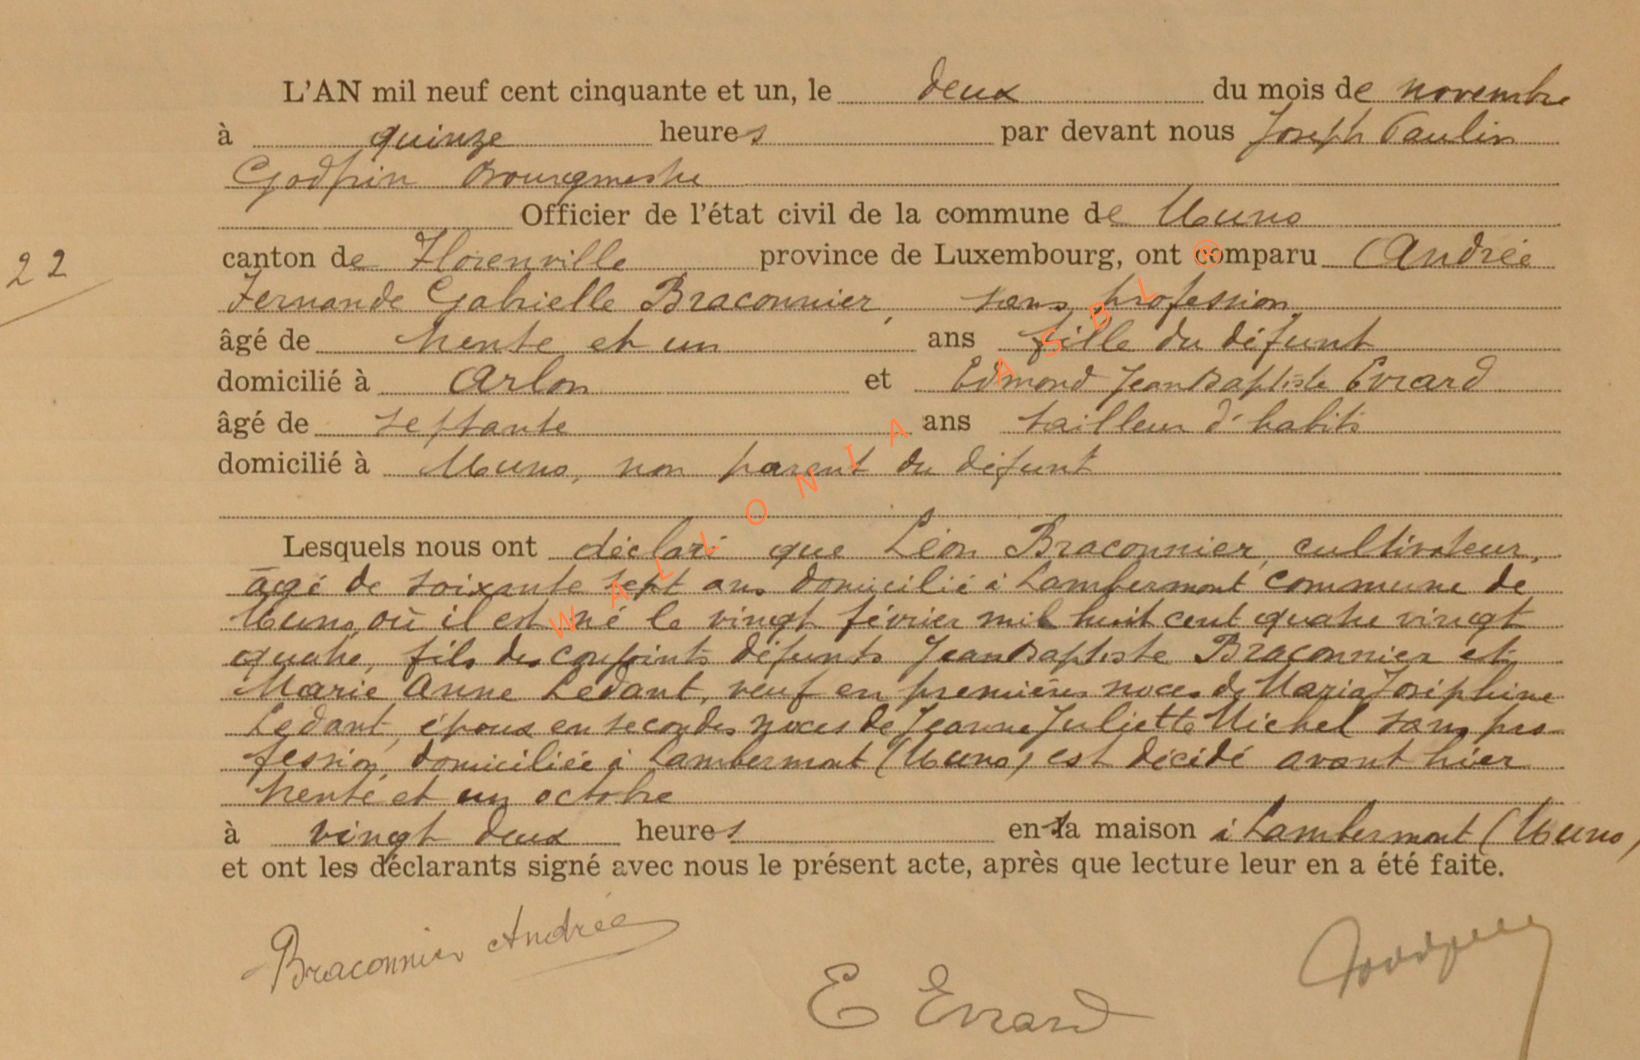 L'AN mil neuf cent cinquante et un, le deux du mois de novembre
à quinze heures par devant nous Joseph Paulin
Godfrin Bourgmestre
Officier de l'état civil de la commune de Muno
22
canton de Florenville province de Luxembourg, ont comparu Andrée
Fernande Gabrielle Braconnier, sans profession,
âgé de trente et un ans fille du défunt
domicilié à Arlon et Edmond Jean Baptiste Evrard
âgé de septante ans tailleur d'habits
domicilié à Muno, non parent du défunt
Lesquels nous ont déclaré que Léon Braconnier, cultivateur,
âgé de soixante sept ans domicilié à Lambermont commune de
Muno, où il est né le vingt février mil huit cent quatre vingt
quatre, fils des conjoints défunts Jean Baptiste Braconnier et
Marie Anne Ledant, veuf en premières noces de Maria Joséphine
Ledant, époux en secondes noces de Jeanne Juliette Michel sans pro-
fession, domiciliée à Lambermont (Muno) est décédé avant hier
trente et un octobre
à vingt deux heures en sa maison à Lambermont (Muno)
et ont les déclarants signé avec nous le présent acte, après que lecture leur en a été faite.
Braconnier Andrée
E Evrard
Godfrin
WALLONIA ASBL ©